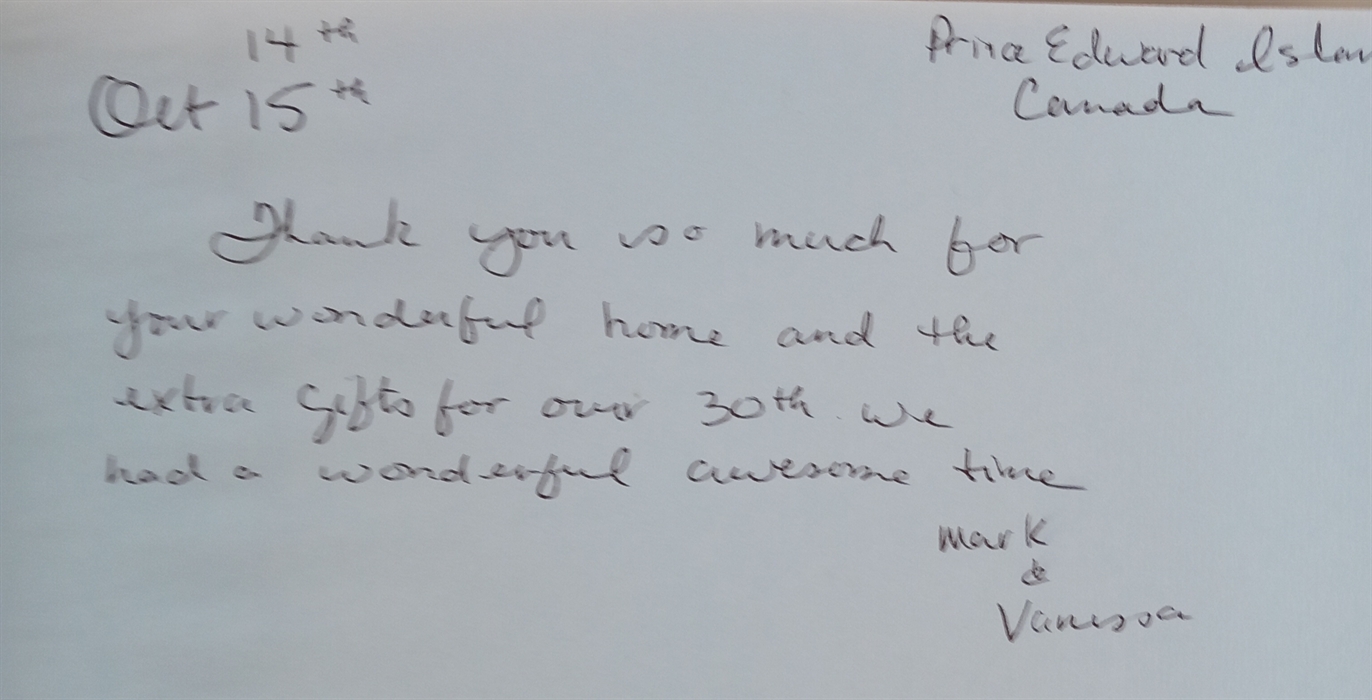 14th
Oct 15th
Prince Edward Islan
Canada
Thank you so much for
your wonderful home and the
extra gifts for our 30th. we
had a wonderful awesome time
Mark
&
Vanessa